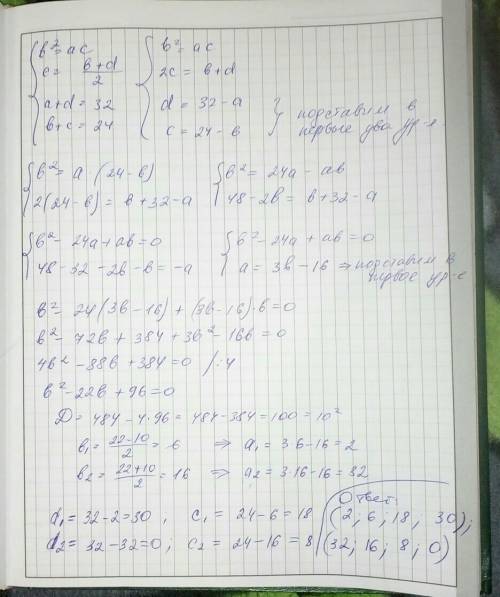 b² = ac
c = (b+d)/2
a+d = 32
b+c = 24
b² = ac
2c = b+d
d = 32-a
c = 24-b
} подставим в
первые два ур-я
b² = a (24-b)
2(24-b) = b+32-a
b² = 24a - ab
48-2b = b+32-a
b² - 24a+ab=0
48-32-2b-b=-a
b²-24a+ab=0
a= 3b-16 ⇒ подставим в
первое ур-е
b² - 24(3b-16) + (3b-16)·b=0
b² - 72b + 384 + 3b² - 16b = 0
4b² - 88b + 384 = 0 /:4
b² - 22b + 96 = 0
D = 484 - 4·96 = 484-384 = 100 = 10²
b₁ = (22-10)/2 = 6 ⇒ a₁ = 3·6-16 = 2
b₂ = (22+10)/2 = 16 ⇒ a₂ = 3·16-16 = 32
d₁ = 32-2=30, c₁ = 24-6 = 18
d₂ = 32-32=0; c₂ = 24-16 = 8
Ответ:
(2; 6; 18; 30);
(32; 16; 8; 0)